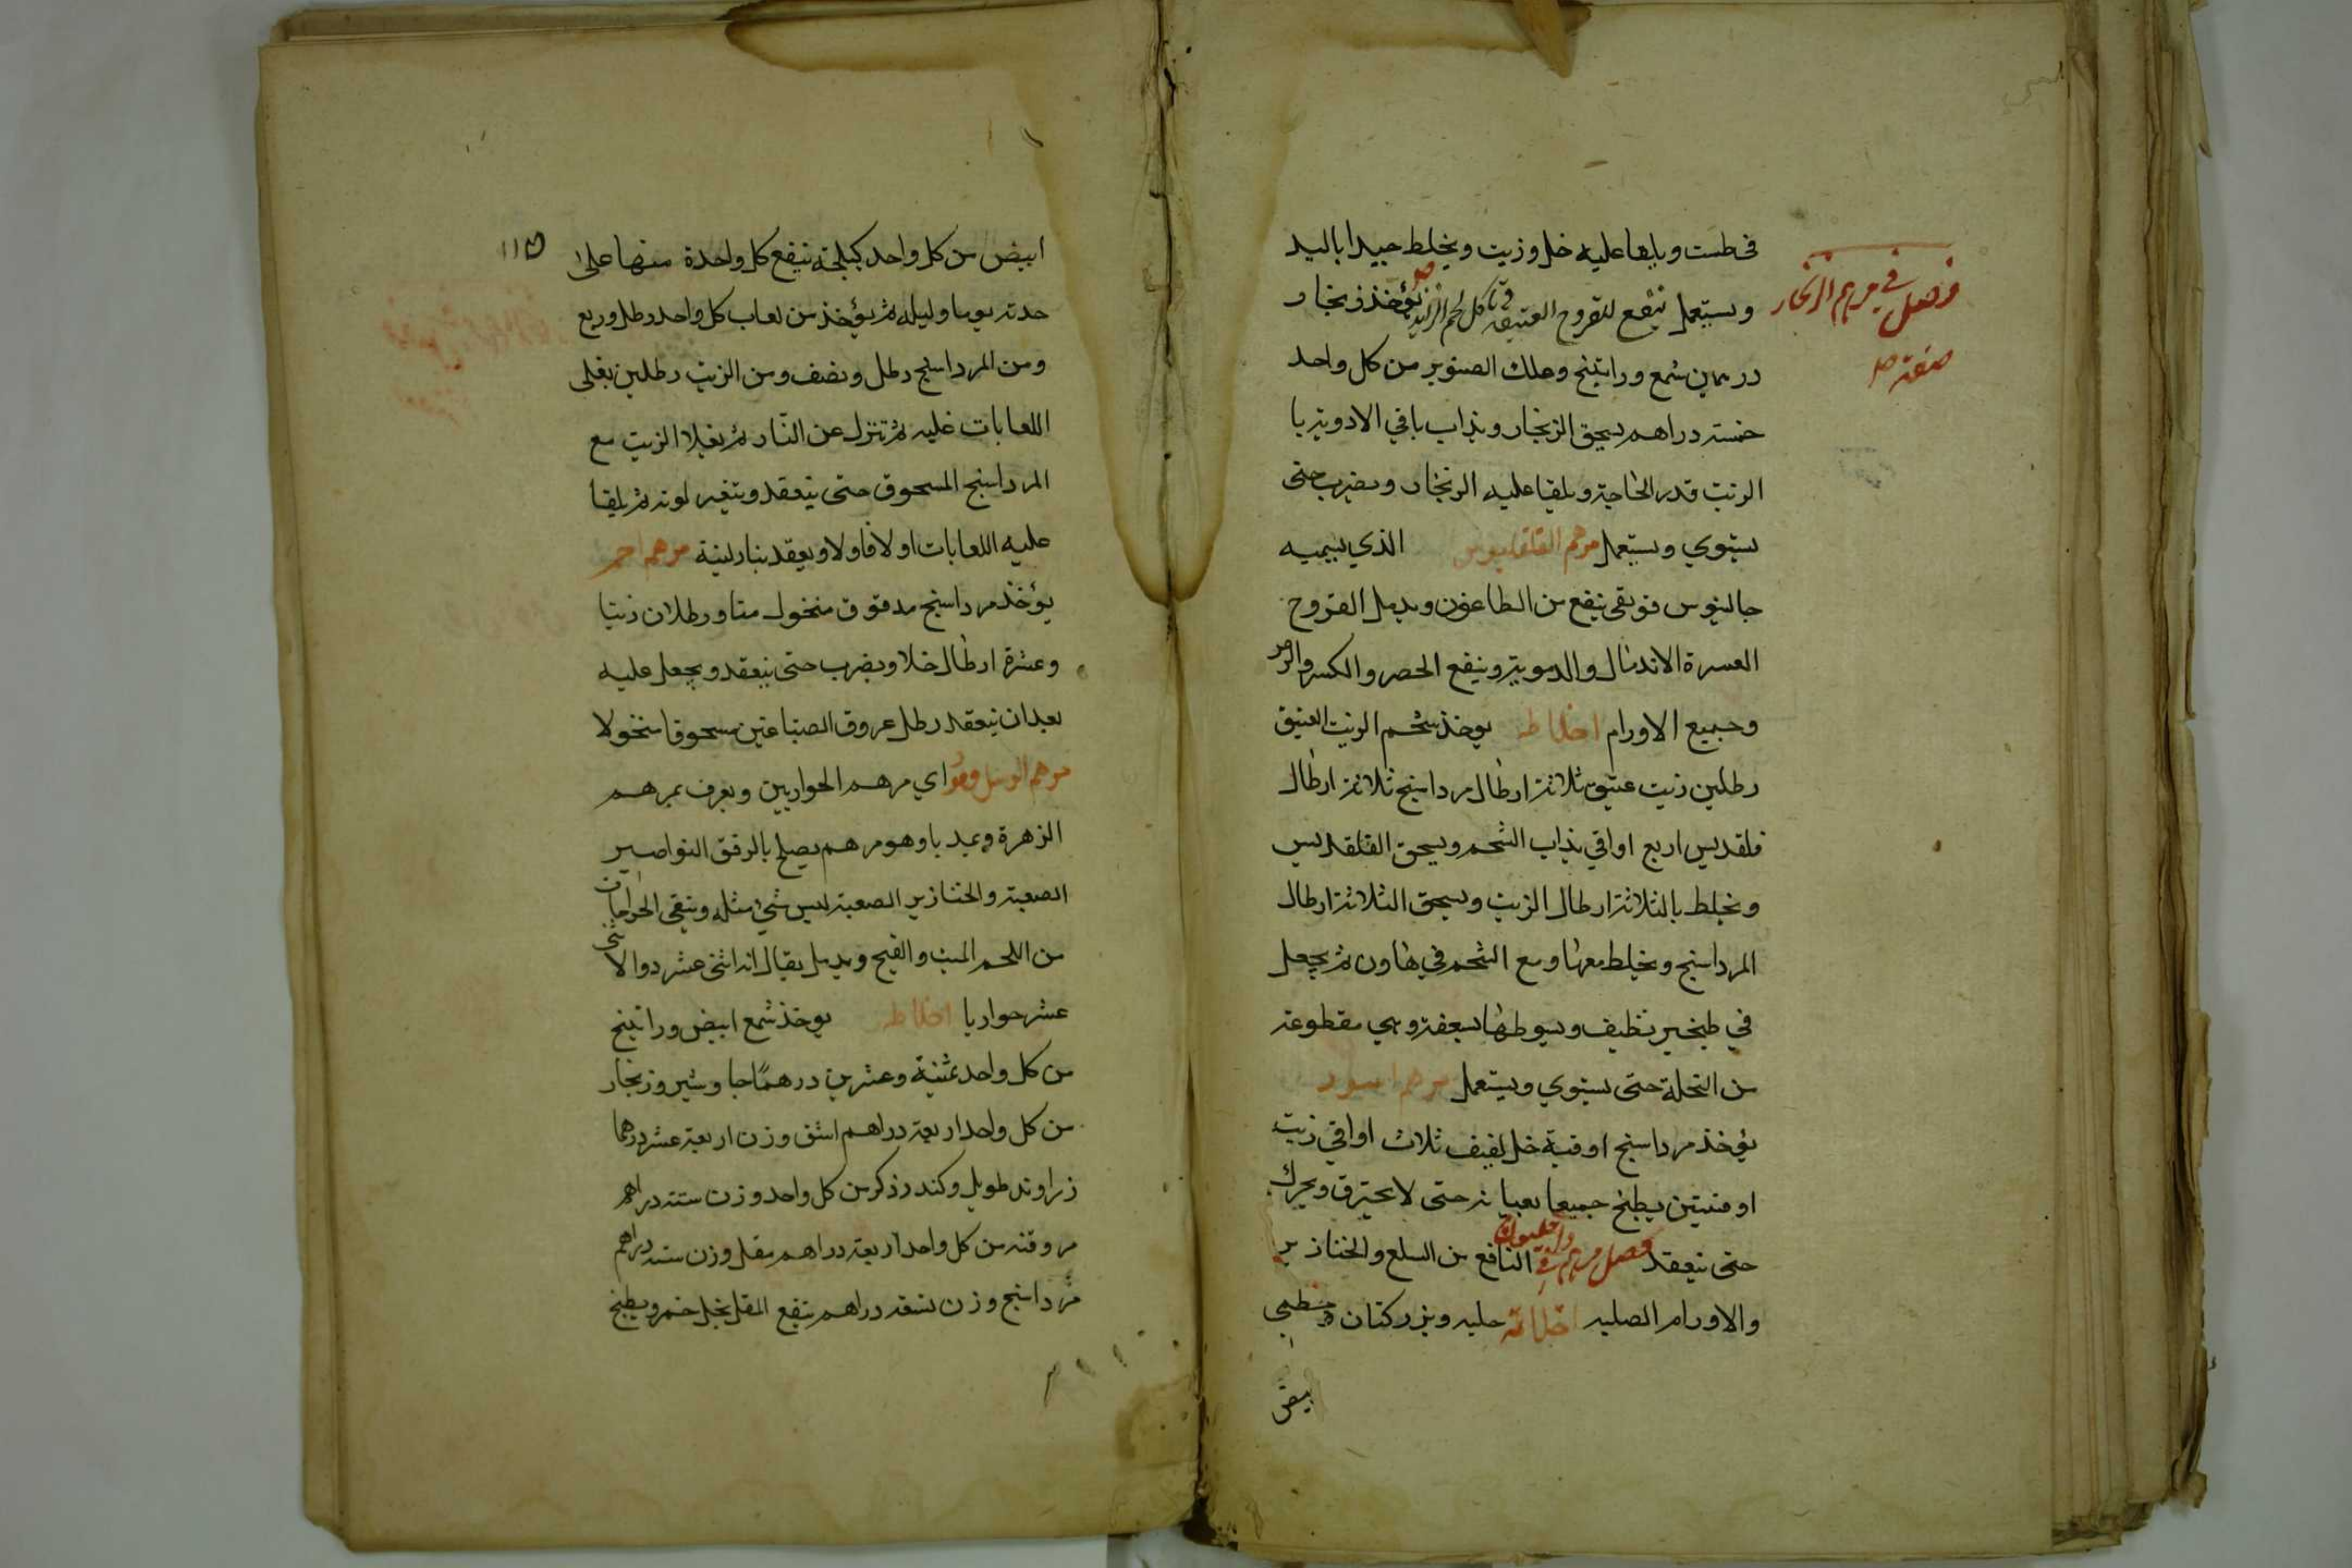 في طست ويلقا عليه خل وزيت ويخلط جيدا باليد
ويستعمل ينفع للقروح العتيقه وتاكل لحم الزايد يؤخذ زنجار
فصل في مرهم الزنجار
صفته
درهمين شمع وراتينج وعلك الصنوبر من كل واحد
خمسة دراهم يسحق الزنجار ويذاب باقي الادوية با
الزيت قدر الحاجة ويلقا عليه الزنجار ويضرب حتى
يستوي ويستعمل مرهم القلقديس الذي يسميه
جالينوس فونيقي ينفع من الطاعون ويدمل القروح
العسرة الاندمال والدموية وينفع الحصر والكسر والرض
وجميع الاورام اخلاطه يوخذ شحم الزيت العتيق
رطلين زيت عتيق ثلاثة ارطال مرداسنج ثلاثة ارطال
قلقديس اربع اواقي يذاب الشحم ويسحق القلقديس
ويخلط بالثلاثة ارطال الزيت ويسحق الثلاثة ارطال
المرداسنج ويخلط معها ومع الشحم في هاون ثم يجعل
في طبخير نظيف ويسوطها بسعفة وهي مقطوعة
من النخلة حتى يستوي ويستعمل مرهم اسود
يؤخذ مرداسنج اوقية خل ثقيف ثلاث اواقي زيت
اوقيتين يطبخ جميعا بعبانه حتى لا يحترق ويحرك
حتى ينعقد فصل في مرهم داخليون النافع من السلع والخنازير
والاورام الصلبه اخلاطه حلبه وبزر كتان وخطمي
ابيض
۱۱۵
ابيض من كل واحد كيلجة ينقع كل واحدة منها على
حدته يوما وليله ثم يؤخذ من لعاب كل واحد رطل وربع
ومن المرداسنج رطل ونصف ومن الزيت رطلين يغلى
اللعابات غليه ثم تنزل عن النار ثم يغلا الزيت مع
المرداسنج المسحوق حتى ينعقد ويتغير لونه ثم يلقا
عليه اللعابات اولا فاولا ويعقد بنار لينة مرهم احمر
يؤخذ مرداسنج مدقوق منخول منا ورطلان زيتا
وعشرة ارطال خلا ويضرب حتى ينعقد ويجعل عليه
بعد ان ينعقد رطل عروق الصباغين مسحوقا منخولا
مرهم الرسل وهو اي مرهم الحواريين ويعرف بمرهم
الزهرة وبمنديا وهو مرهم يصلح بالرفق النواصير
الصعبة والخنازير الصعبة ليس شيء مثله وينقي الخراجات
من اللحم الميت والقيح ويدمل يقال انه اثنى عشر دوا لاثنى
عشر حواريا اخلاطه يوخذ شمع ابيض وراتينج
من كل واحد ثمنية وعشرين درهمًا جاوشير وزنجار
من كل واحد اربعة دراهم اشق وزن اربعة عشر درهما
زراوند طويل وكندر ذكر من كل واحد وزن ستة دراهم
مر وقنه من كل واحد اربعة دراهم مقل وزن ستة دراهم
مرداسنج وزن تسعة دراهم ينقع المقل بخل خمر ويطبخ